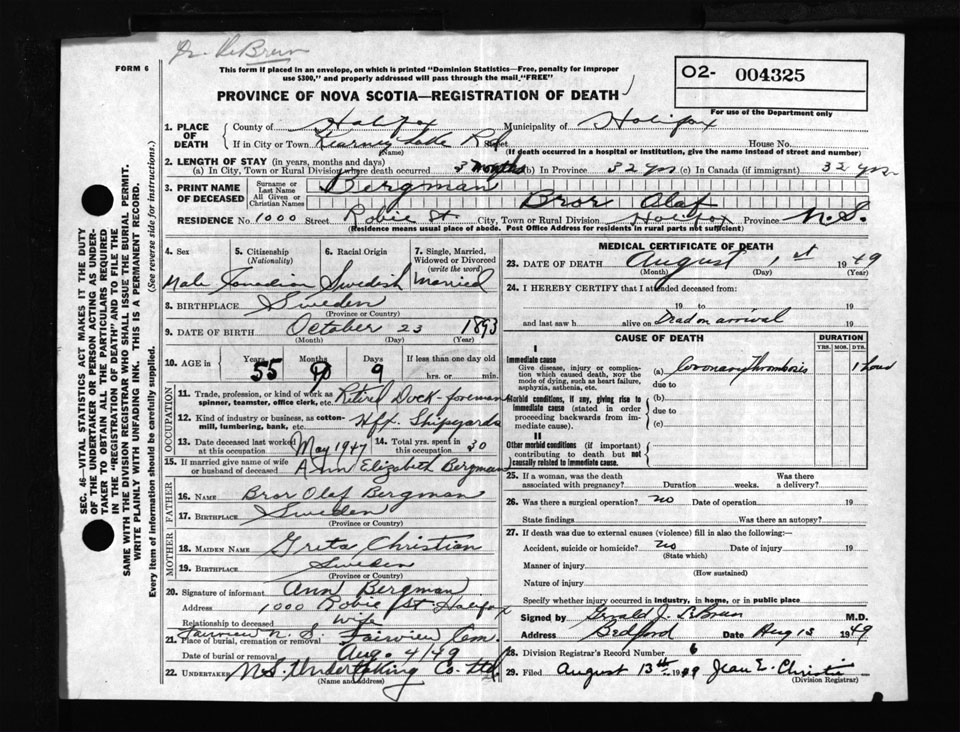 Dr. DeBrun
FORM 6
This form if placed in an envelope, on which is printed "Dominion Statistics—Free, penalty for improper
use $300," and properly addressed will pass through the mail "FREE"
PROVINCE OF NOVA SCOTIA—REGISTRATION OF DEATH
02- 004325
For use of the Department only
SEC. 46—VITAL STATISTICS ACT MAKES IT THE DUTY
OF THE UNDERTAKER OR PERSON ACTING AS UNDER-
TAKER TO OBTAIN ALL THE PARTICULARS REQUIRED
IN THE "REGISTRATION OF DEATH" AND TO FILE THE
SAME WITH THE DIVISION REGISTRAR WHO SHALL ISSUE THE BURIAL PERMIT.
WRITE PLAINLY WITH UNFADING INK. THIS IS A PERMANENT RECORD.
Every item of information should be carefully supplied. (See reverse side for instructions.)
1. PLACE OF DEATH County of Halifax Municipality of Halifax
If in City or Town Kearney Lake Rd Street House No.
(Name) (If death occurred in a hospital or institution, give the name instead of street and number)
2. LENGTH OF STAY (in years, months and days)
(a) In City, Town or Rural Division where death occurred 3 months (b) In Province 32 yrs (c) In Canada (if immigrant) 32 yrs
3. PRINT NAME OF DECEASED Surname or Last Name Bergman
All Given or Christian Names Bror Olaf
RESIDENCE No. 1000 Street Robie St City, Town or Rural Division Halifax Province N.S.
(Residence means usual place of abode. Post Office Address for residents in rural parts not sufficient)
4. Sex 5. Citizenship (Nationality) 6. Racial Origin 7. Single, Married, Widowed or Divorced (write the word)
Male Canadian Swedish Married
8. BIRTHPLACE Sweden
(Province or Country)
9. DATE OF BIRTH October 23 1893
(Month) (Day) (Year)
10. AGE in Years Months Days If less than one day old
55 9 9 hrs. or min.
OCCUPATION
11. Trade, profession, or kind of work as spinner, teamster, office clerk, etc. Retired Dock-foreman
12. Kind of industry or business, as cotton-mill, lumbering, bank, etc. Hfx. Shipyards
13. Date deceased last worked at this occupation May 1947 14. Total yrs. spent in this occupation 30
15. If married give name of wife or husband of deceased Ann Elizabeth Bergman
FATHER
16. NAME Bror Olaf Bergman
17. BIRTHPLACE Sweden
(Province or Country)
MOTHER
18. MAIDEN NAME Greta Christian
19. BIRTHPLACE Sweden
(Province or Country)
20. Signature of informant Ann Bergman
Address 1000 Robie St Halifax
Relationship to deceased wife
21. Place of burial, cremation or removal Fairview N.S. Fairview Cem.
Date of burial or removal Aug 4/49
22. UNDERTAKER N.S. Undertaking Co. Ltd.
(Name and address)
MEDICAL CERTIFICATE OF DEATH
23. DATE OF DEATH August 1st 1949
(Month) (Day) (Year)
24. I HEREBY CERTIFY that I attended deceased from:
19 to 19
and last saw h alive on Dead on arrival 19
CAUSE OF DEATH DURATION
YRS. MOS. DYS.
I
Immediate cause
Give disease, injury or complication which caused death, nor the mode of dying, such as heart failure, asphyxia, asthenia, etc.
(a) Coronary Thrombosis 1 hour
due to
Morbid conditions, if any, giving rise to immediate cause (stated in order proceeding backwards from immediate cause).
(b)
due to
(c)
II
Other morbid conditions (if important) contributing to death but not causally related to immediate cause.
25. If a woman, was the death associated with pregnancy? Duration weeks. Was there a delivery?
26. Was there a surgical operation? no Date of operation 19
State findings Was there an autopsy?
27. If death was due to external causes (violence) fill in also the following:
Accident, suicide or homicide? no Date of injury 19
(State which)
Manner of injury
(How sustained)
Nature of injury
Specify whether injury occurred in industry, in home, or in public place
Signed by Gerald J. LeBrun M.D.
Address Bedford Date Aug 13 1949
28. Division Registrar's Record Number 6
29. Filed August 13th 1949 Jean E. Christie
(Division Registrar)